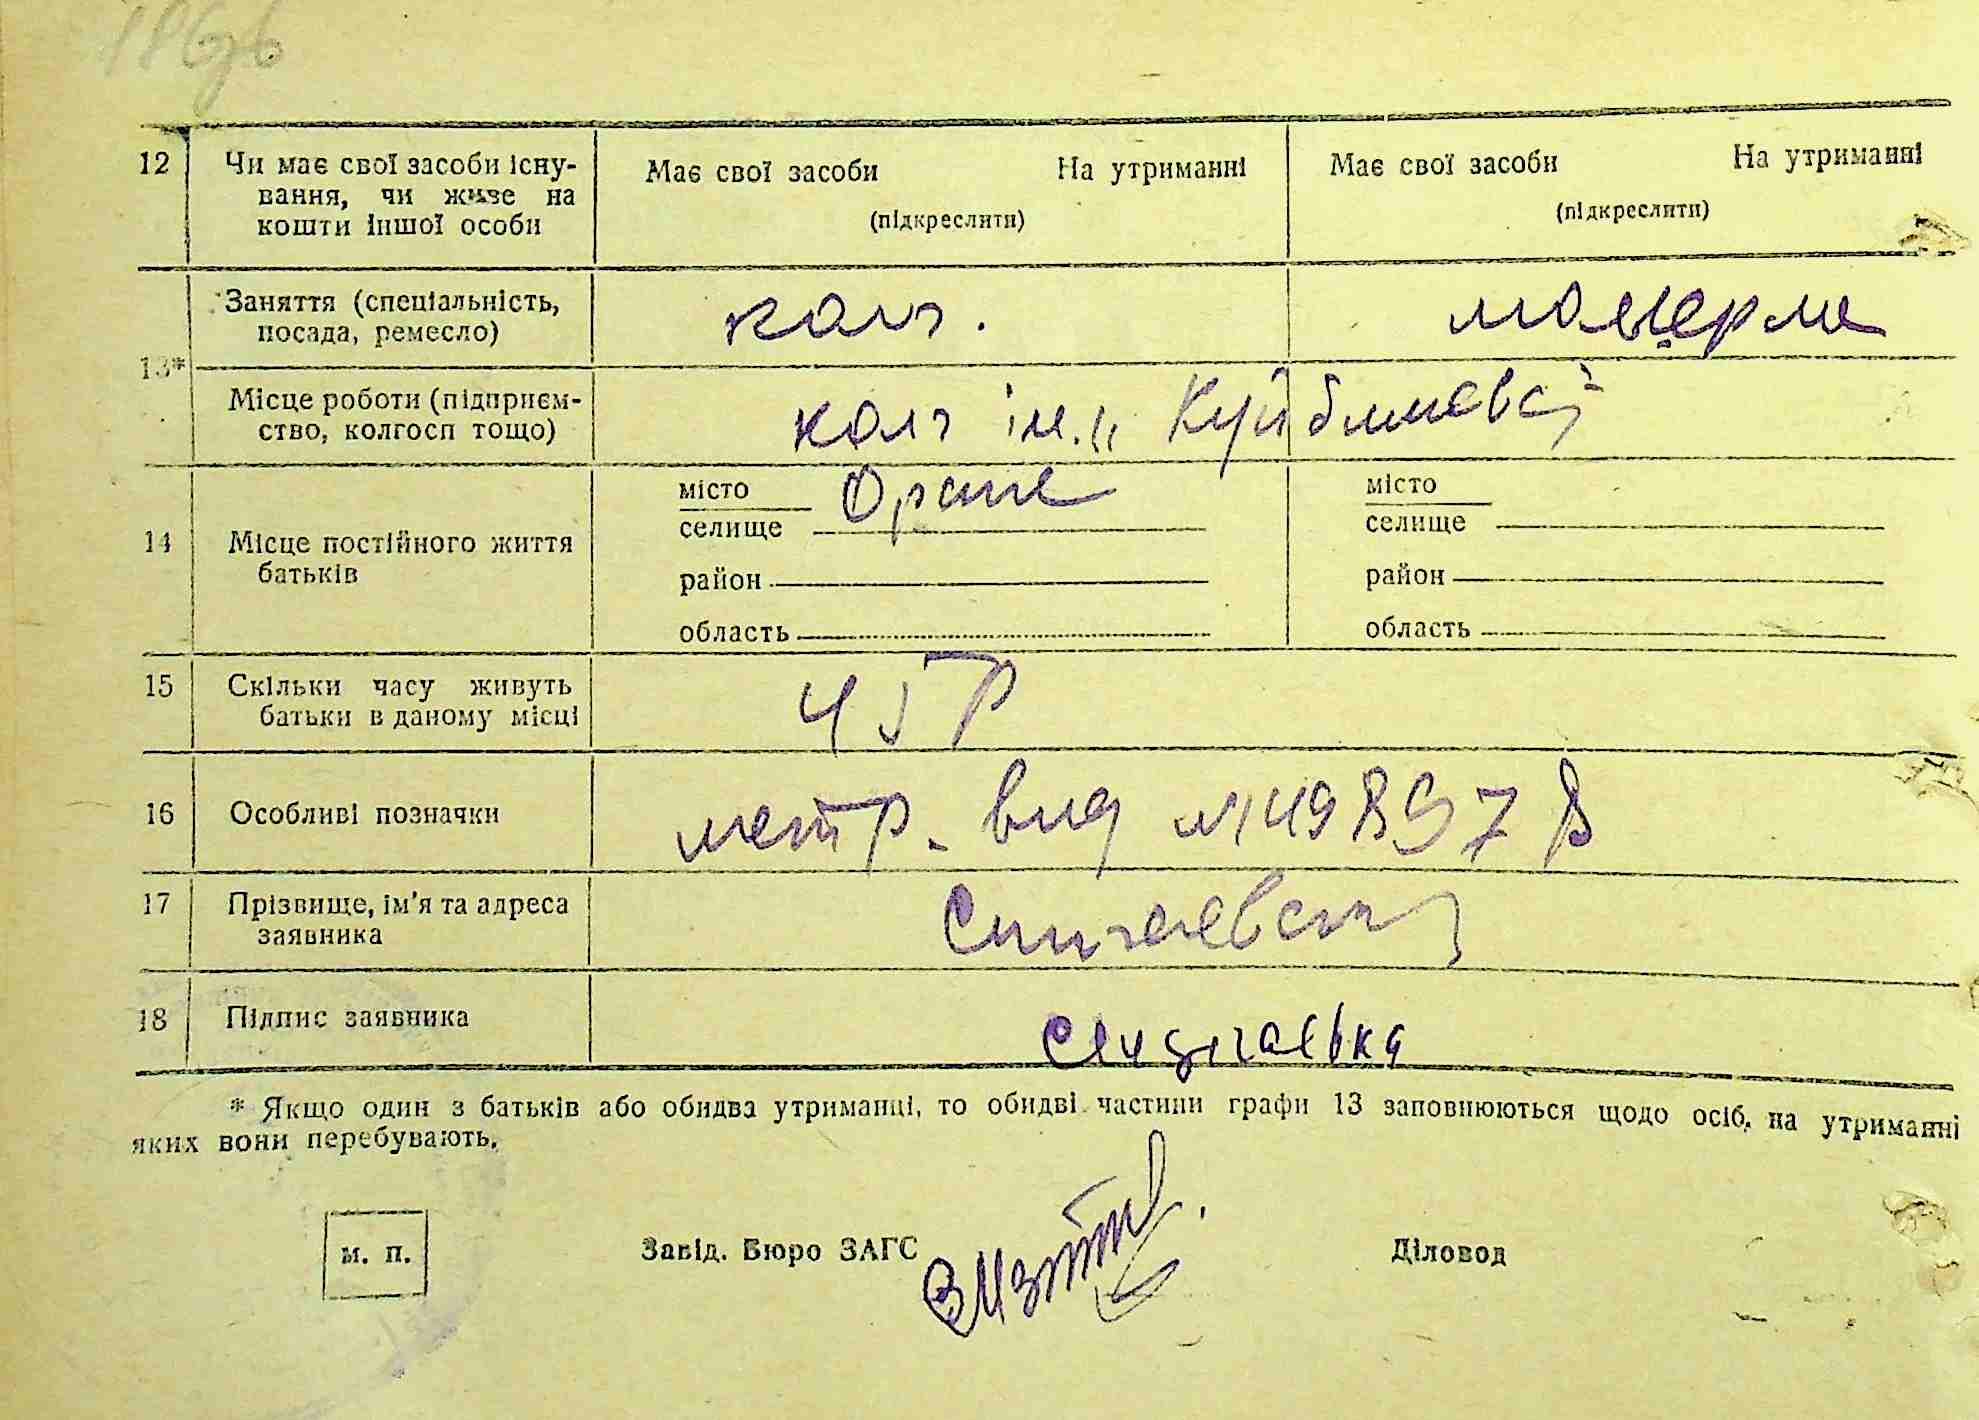 12
Чи має свої засоби існу-
вання, чи живе на
кошти іншої особи
Має свої засоби На утриманні
(підкреслити)
Має свої засоби На утриманні
(підкреслити)
13*
Заняття (спеціальність,
посада, ремесло)
колг.
Місце роботи (підприєм-
ство, колгосп тощо)
колг ім. „
14
Місце постійного життя
батьків
місто
селище
Оране
район
область
місто
селище
район
область
15
Скільки часу живуть
батьки в даному місці
16
Особливі позначки
метр. вид №149897
17
Прізвище, ім'я та адреса
заявника
18
Підпис заявника
* Якщо один з батьків або обидва утриманці, то обидві частини графи 13 заповнюються щодо осіб, на утриманні
яких вони перебувають.
м. п.
Завід. Бюро ЗАГС
Діловод